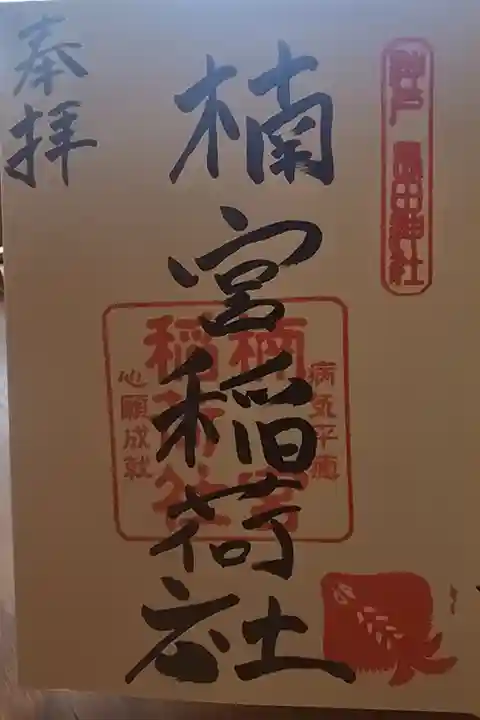 神戸 長田神社
楠宮稲荷社
病気平癒
楠宮
稲荷社
心願成就
奉拝